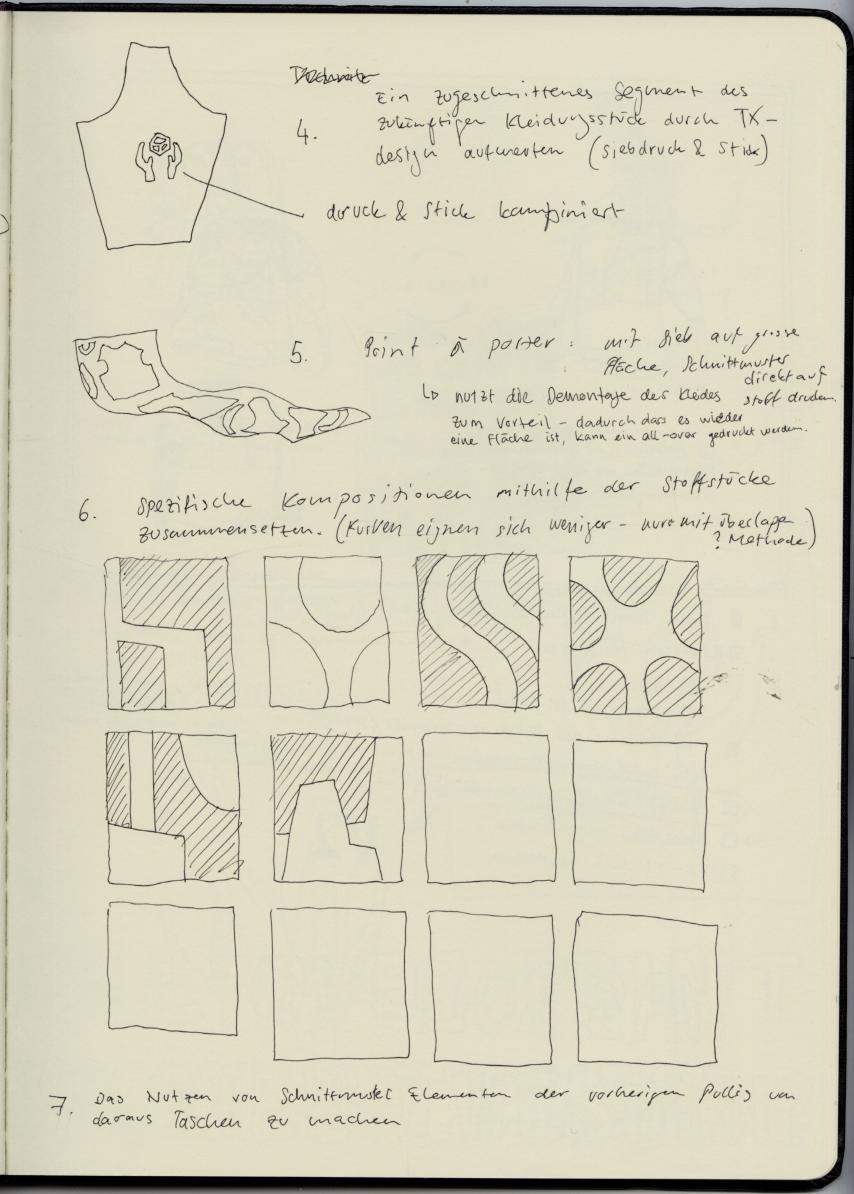 4.
Ein zugeschnittenes Segment des
zukünftigen Kleidungsstück durch TX-
design aufwerten (siebdruck & Stick)
druck & Stick kombiniert
5. Print à porter: mit Sieb auf grosse
fläche, Schnittmuster
direkt auf
stoff drucken.
↳ nutzt die Demontage des Kleides
zum Vorteil - dadurch dass es wieder
eine Fläche ist, kann ein all-over gedruckt werden.
6. Spezifische Kompositionen mithilfe der Stoffstücke
zusammensetzen. (Kurven eignen sich weniger - nur mit überlapp
? Methode)
7. Das Nutzen von Schnittmuster Elementen der vorherigen Pullis um
daraus Taschen zu machen